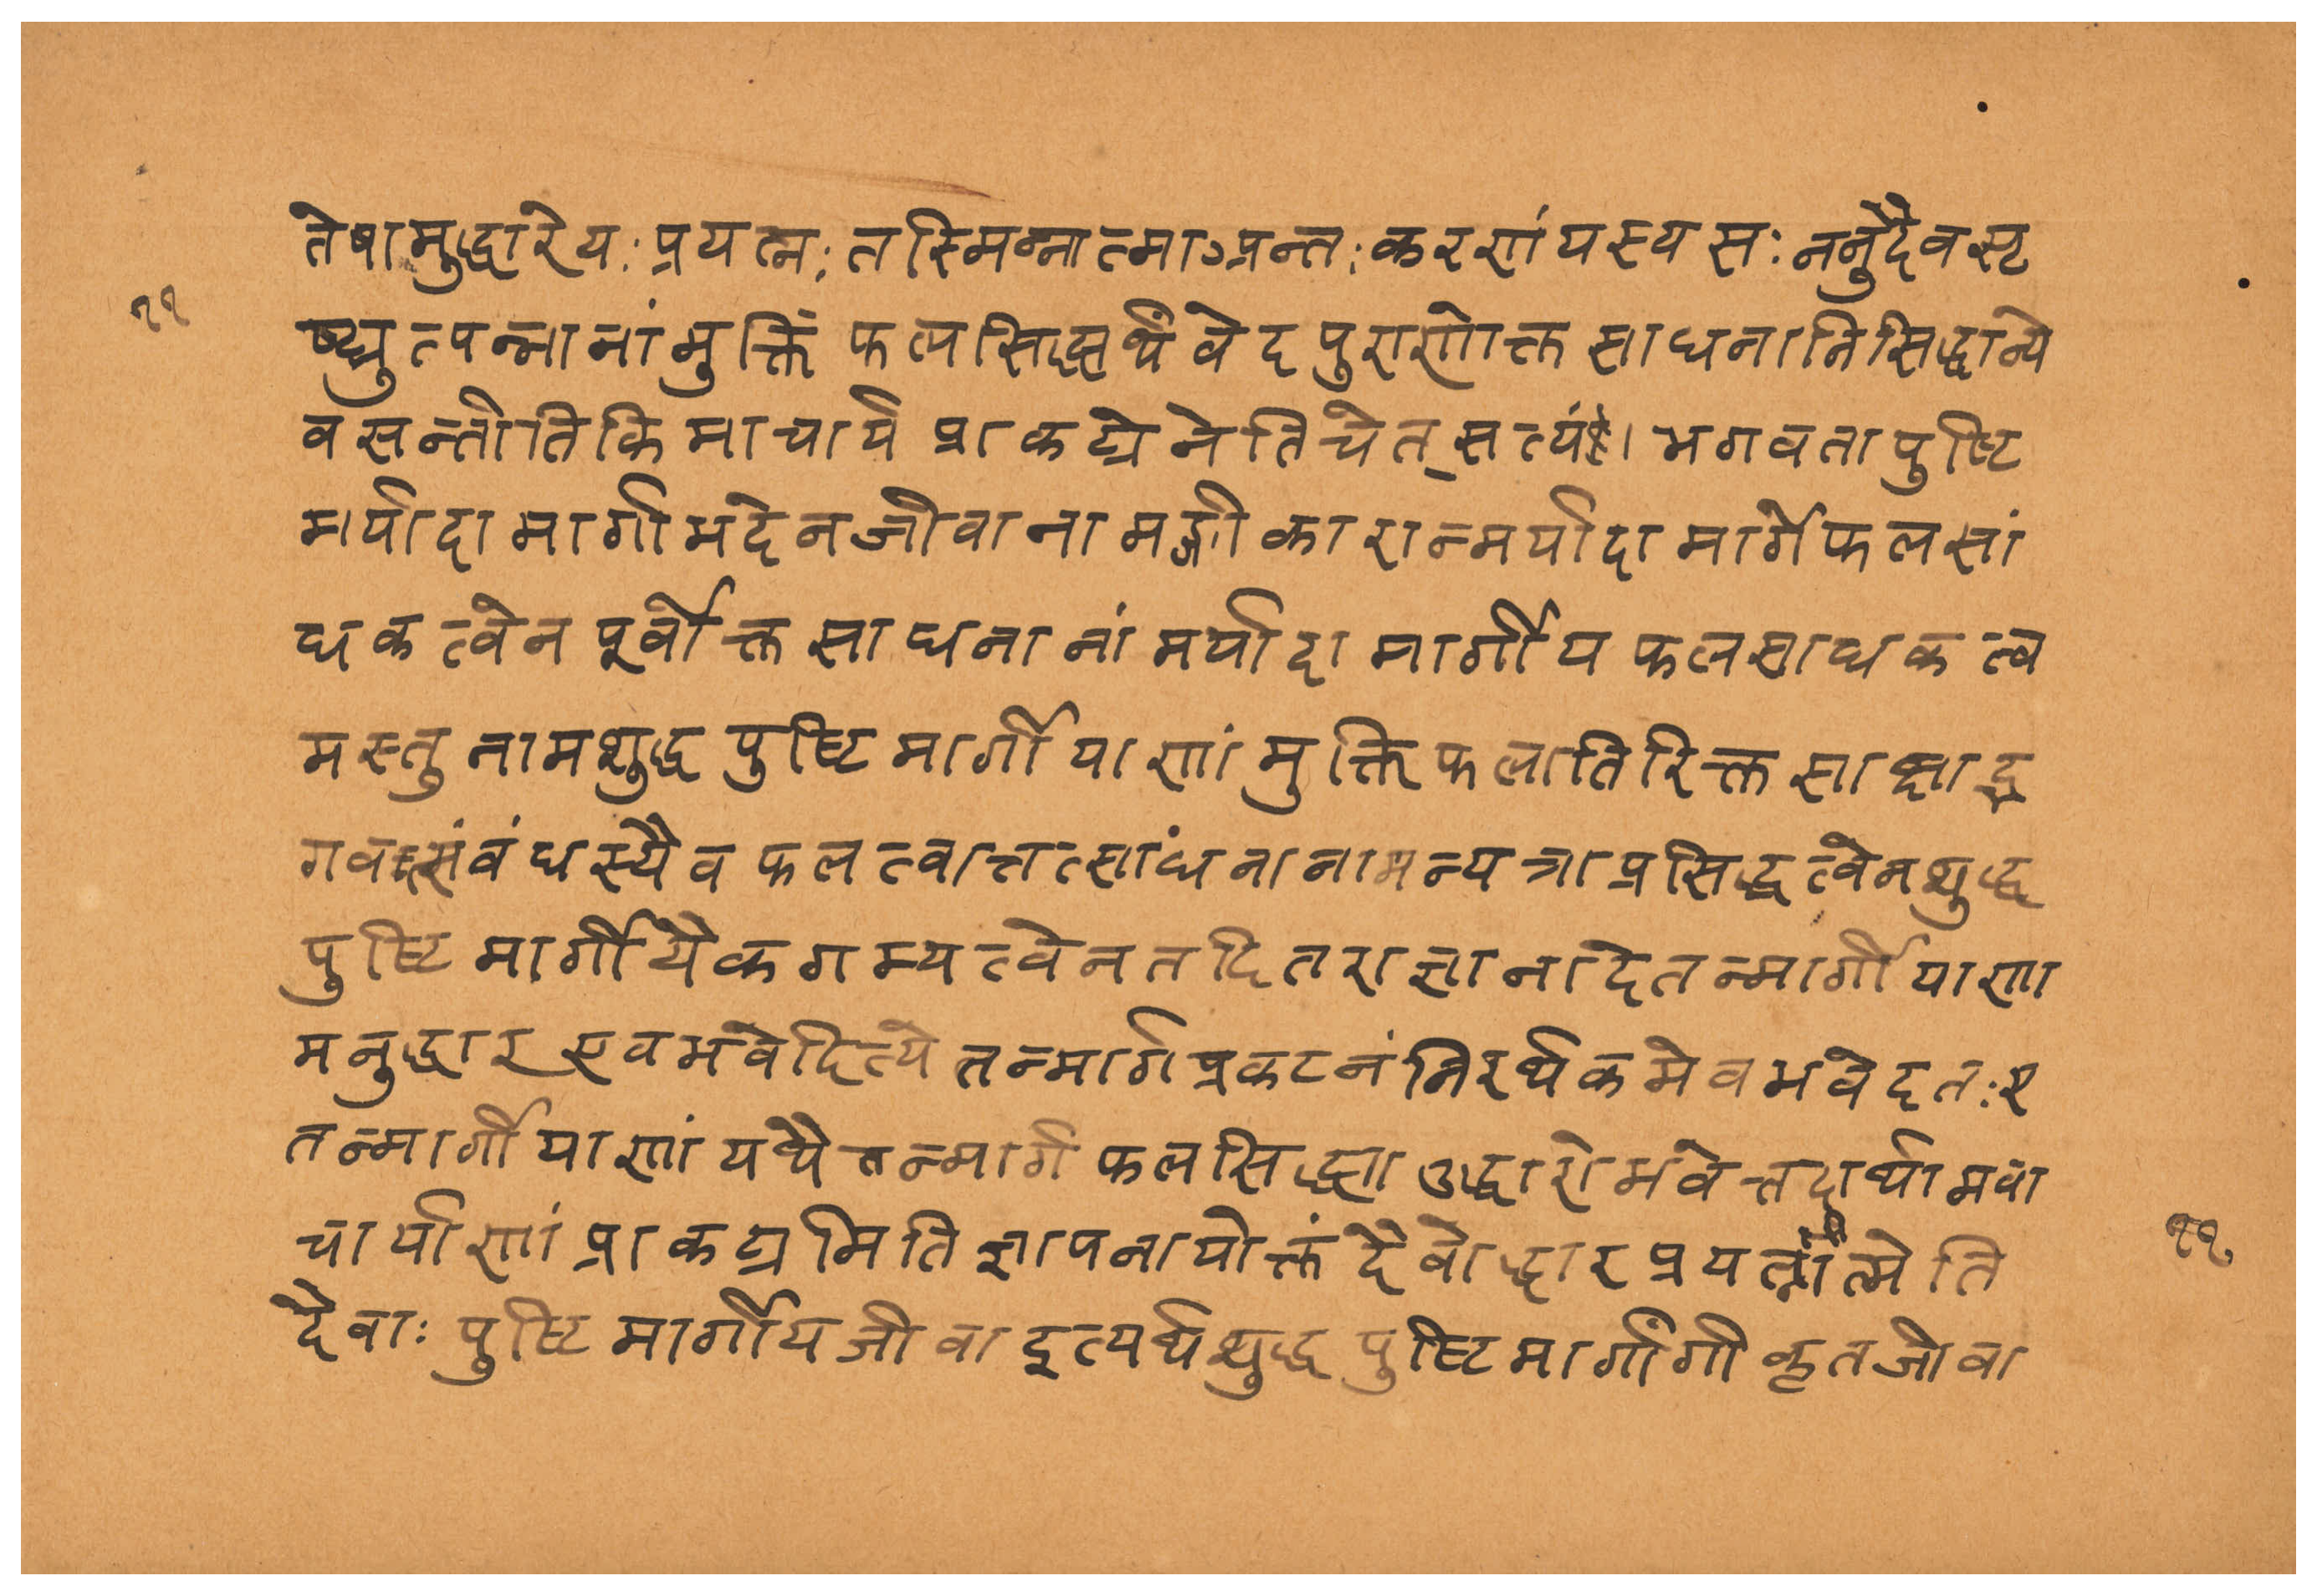 तेषामुद्धारेयः प्रयत्नः तस्मिन्नात्माऽन्तः करणं यस्य सः ननु दैवसृ
११
ष्ट्युत्पन्नानां मुक्तिं फलसिद्ध्यर्थं वेदपुराणोक्त साधनानि सिद्धान्ये
व सन्तीति किमाचार्य प्राकट्येनेति चेत् सत्यं। भगवता पुष्टि
मर्यादा मार्गाभदेन जीवानामङ्गीकारान्मर्यादा मार्गे फल सां
धकत्वेन पूर्वोक्त साधनानां मर्यादा मार्गीय फलसाधकत्व
मस्तु नाम शुद्ध पुष्टि मार्गीयाणां मुक्तिफलातिरिक्त साक्षाद्भ
गवत्संबंधस्यैव फलत्वात्तत्साधनानामन्यत्राप्रसिद्धत्वेन शुद्ध
पुष्टि मार्गीयैकगम्यत्वेन तदितराज्ञानादेतन्मार्गीयाणा
मनुद्धार एव भवेदित्येतन्मार्ग प्रकटनं निरर्थकमेव भवेदतः ए
तन्मार्गीयाणां यथैतन्मार्ग फलसिद्ध्या उद्धारो भवेत्तदर्थामवा
चार्याणां प्राकट्यमिति ज्ञापनायोक्तं दैवोद्धार प्रयत्नात्मेति
११
दैवाः पुष्टि मार्गीय जीवा इत्यर्थ शुद्ध पुष्टि मार्गांगी कृत जीवा